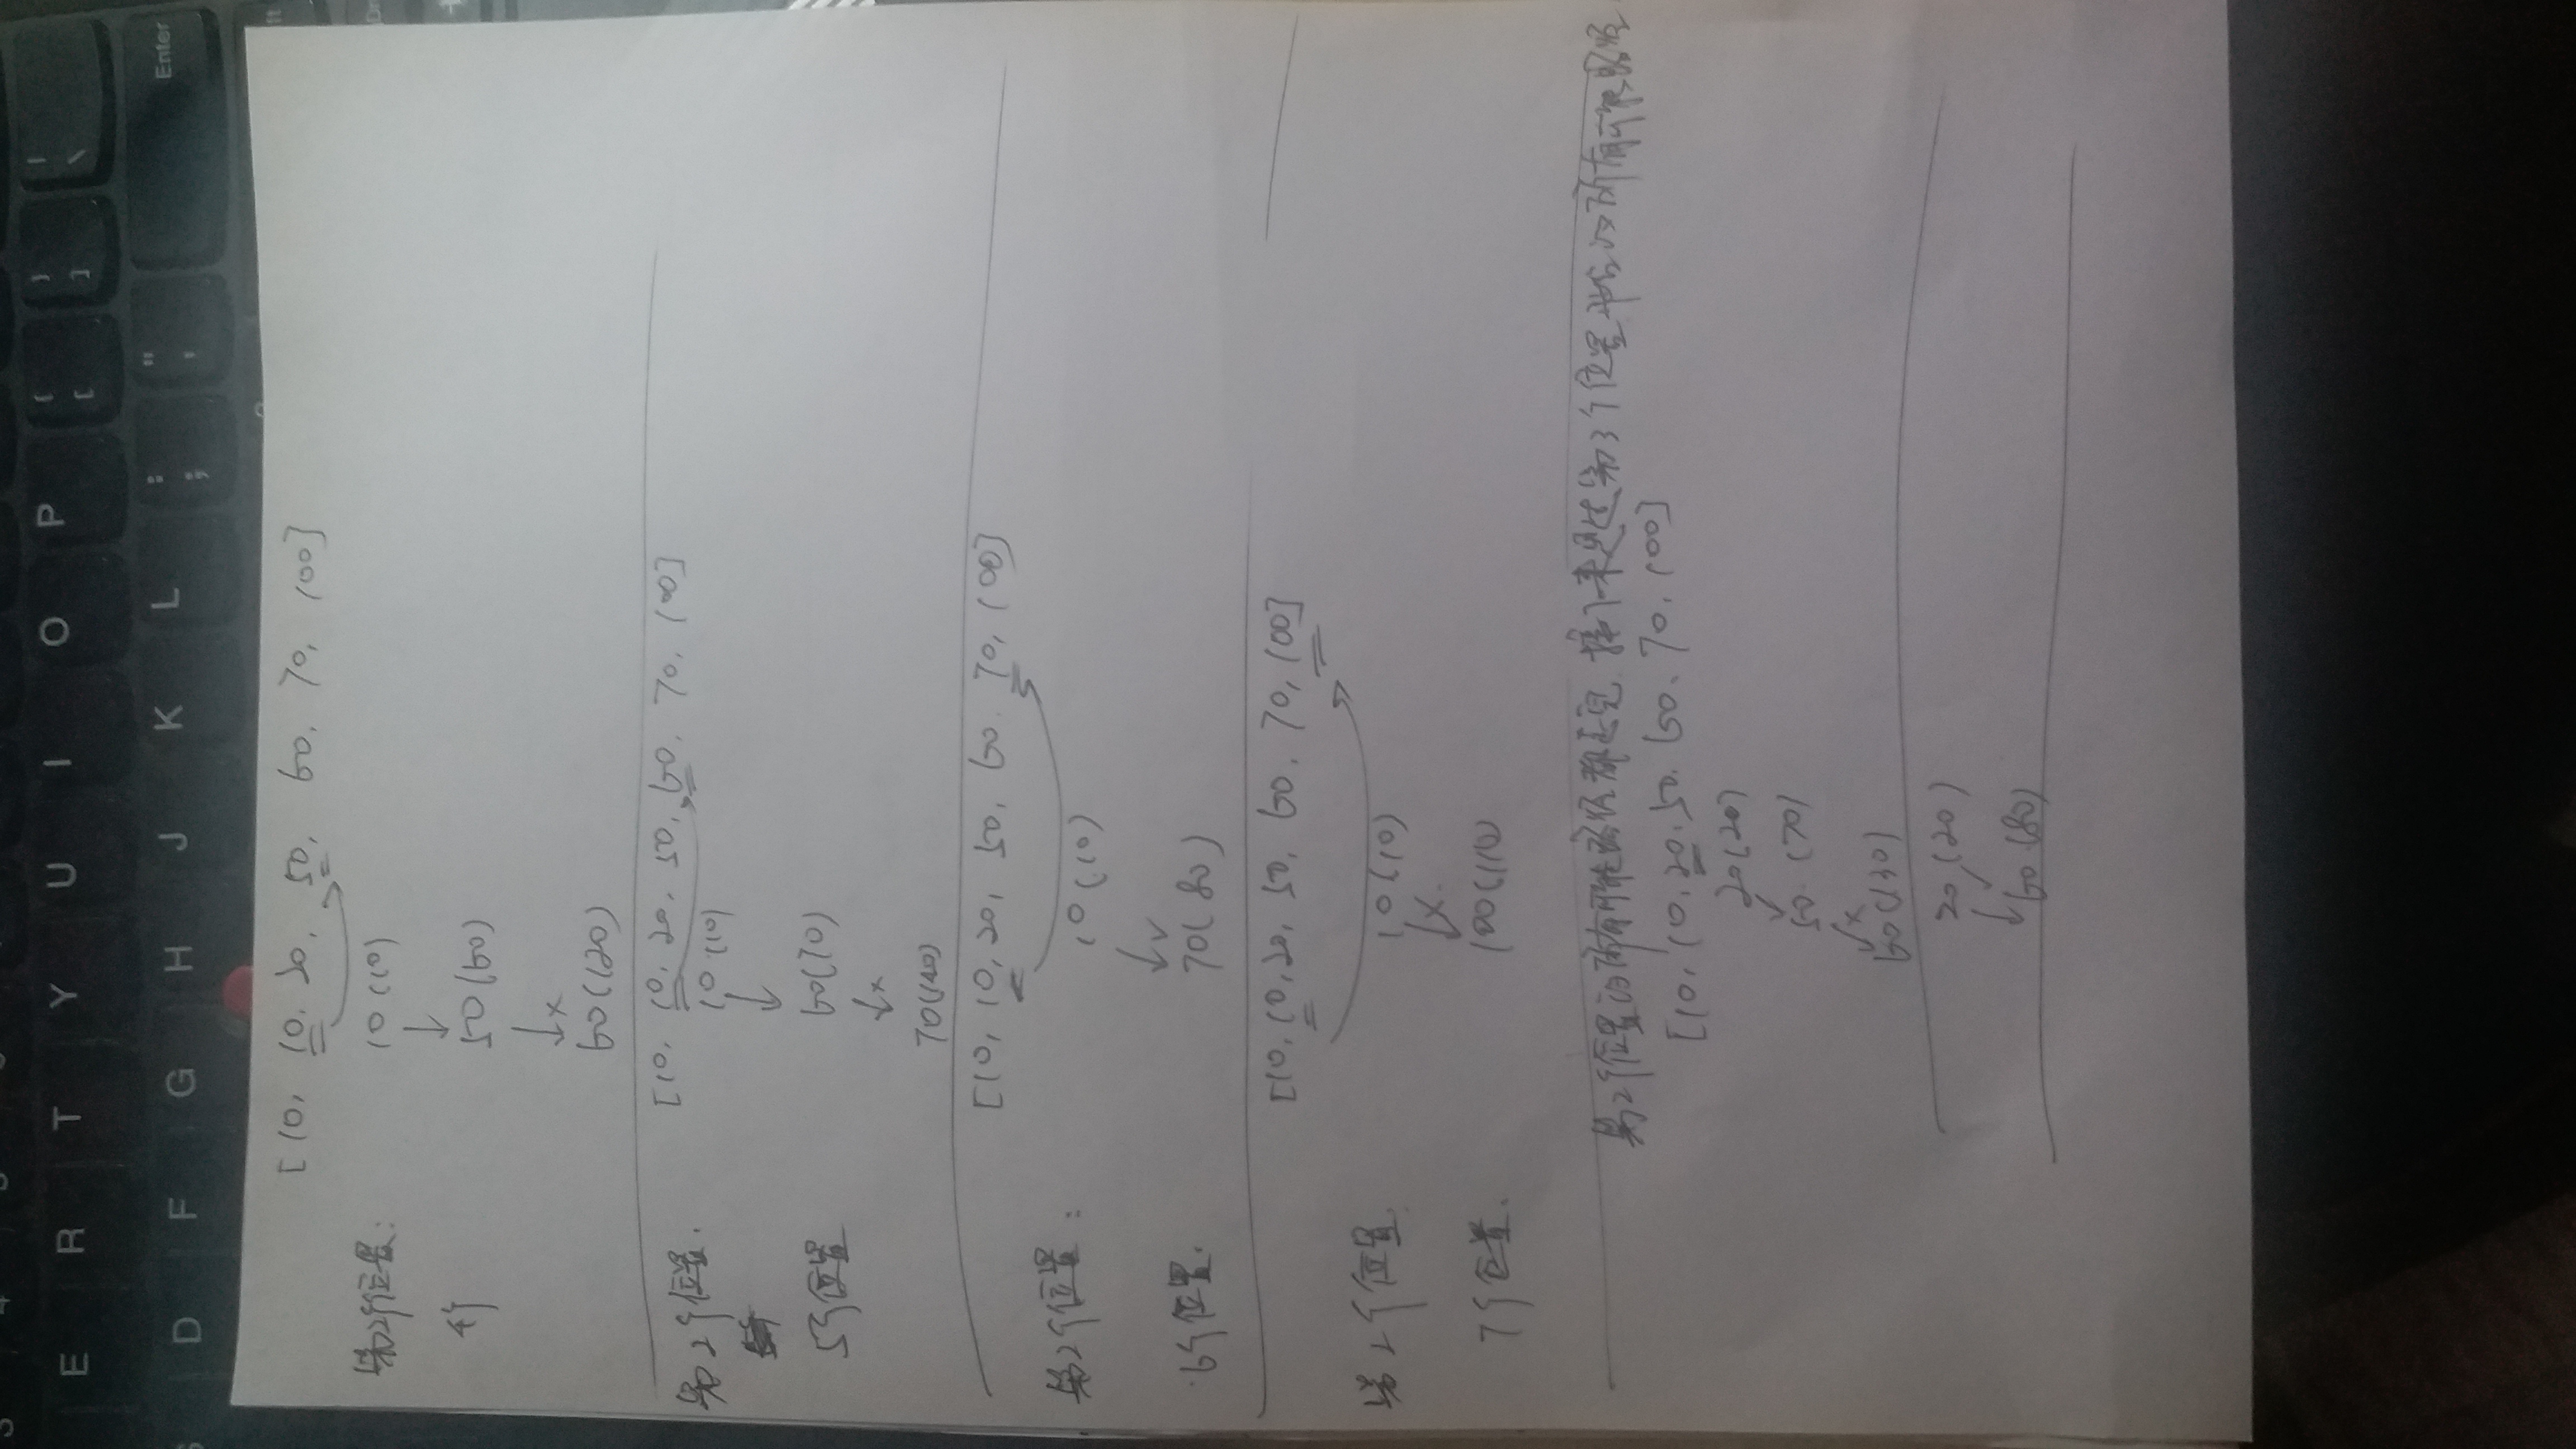 E R T Y U I O P { [ } ] | \
D F G H J K L : ; " ' Enter
[10, 10, 20, 50, 60, 70, 100]
第2个位置: 10(10)
4个 50(60)
×
60(120)
[10, 10, 20, 50, 60, 70, 100]
第2个位置. 10(10)
5个位置 60(70)
×
70(140)
[10, 10, 20, 50, 60, 70, 100]
第2个位置: 10(10)
6个位置. 70(80)
[10, 10, 20, 50, 60, 70, 100]
第2个位置. 10(10)
×
7个位置. 100(110)
第2个位置的所有可能路径都走完 接下来是走第3个位置开始的所有可能路径
[10, 10, 20, 50, 60, 70, 100]
20(20)
50 (70)
×
60(130)
20(20)
60(80)